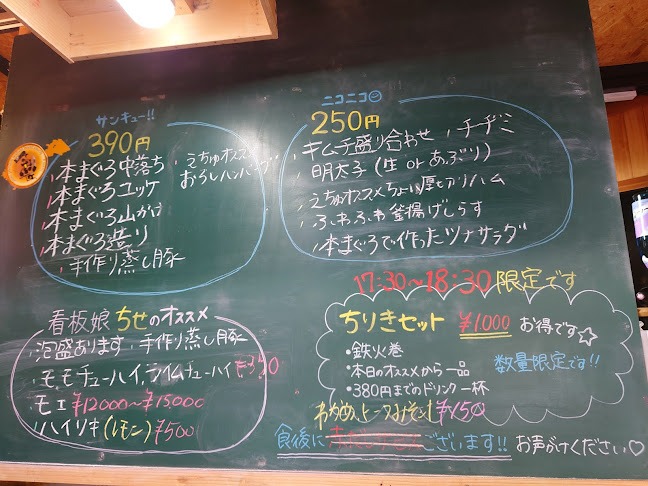 サンキュー!!
390円
本まぐろ中落ち
本まぐろユッケ
本まぐろ山かけ
本まぐろ造り
手作り蒸し豚
えちゅオススメ
おろしハンバーグ
ニコニコ
250円
キムチ盛り合わせ チヂミ
明太子(生 or あぶり)
えちゅオススメちょい厚切りハム
ふわふわ釜揚げしらす
本まぐろで作ったツナサラダ
看板娘 ちせのオススメ
泡盛あります 手作り蒸し豚
モモチューハイ,ライムチューハイ
モエ ¥12000〜¥15,000
ハイリキ(レモン) ¥500
17:30〜18:30 限定です
ちりきセット ¥1,000 お得です☆
・鉄火巻
・本日のオススメから一品
・380円までのドリンク一杯
数量限定です!!
¥150
食後に
ございます!! お声がけください♡